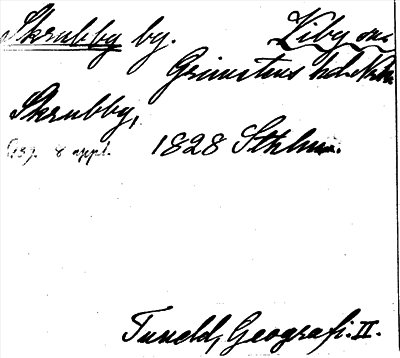 Skrubby by. Liby sn.
Grimstens hd. Nke.
Skrubby,
(s. 137. 8 uppl. 1828 Sthlm.
Tuneld, Geografi. II.